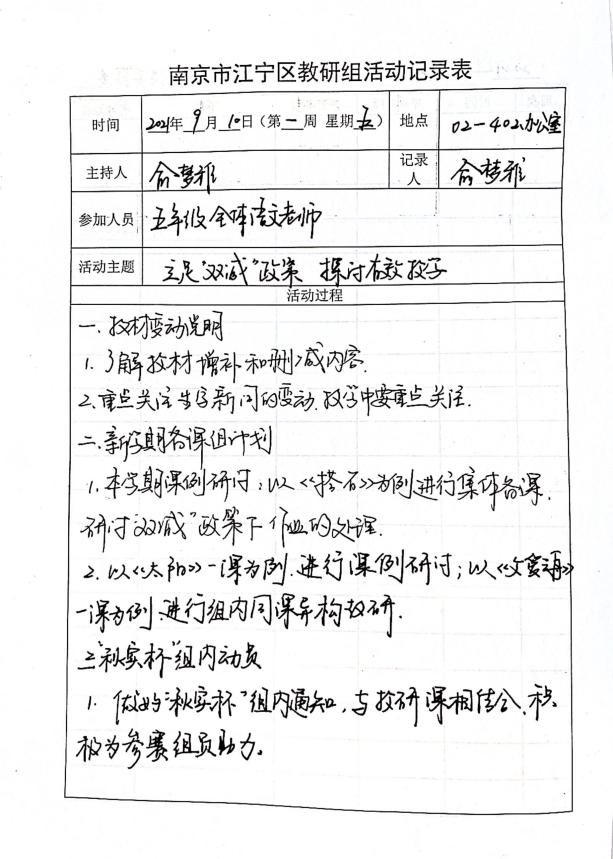 南京市江宁区教研组活动记录表
时间 2021年 9月 10日（第一周 星期五） 地点 02-402办公室
主持人 俞梦雅 记录人 俞梦雅
参加人员 五年级全体语文老师
活动主题 立足“双减”政策 探讨有效教学
活动过程
一、教材变动说明
1. 了解教材增补和删减内容.
2. 重点关注生字新词的变动,教学中要重点关注.
二、新学期备课组计划
1. 本学期课例研讨:以《搭石》为例进行集体备课,
研讨“双减”政策下作业的处理.
2. 以《太阳》一课为例,进行课例研讨;以《
一课为例,进行组内同课异构教研.
三、“秋实杯”组内动员
1. 做好“秋实杯”组内通知,与教研课相结合,积
极为参赛组员助力。